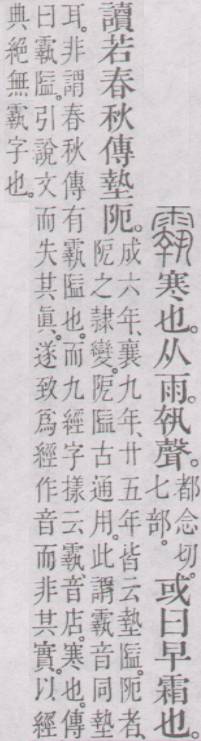 䨴寒也。从雨。執聲。都念切。七部。或曰早霜也。
讀若春秋傳墊阨。成六年、襄九年、廿五年皆云墊隘。阨者、
阨之隸變。阨隘古通用。此謂䨴音同墊
耳。非謂春秋傳有䨴隘也。而九經字樣云䨴音店。寒也。傳
曰䨴隘。引說文而失其眞。遂致爲經作音而非其實。以經
典絕無䨴字也。